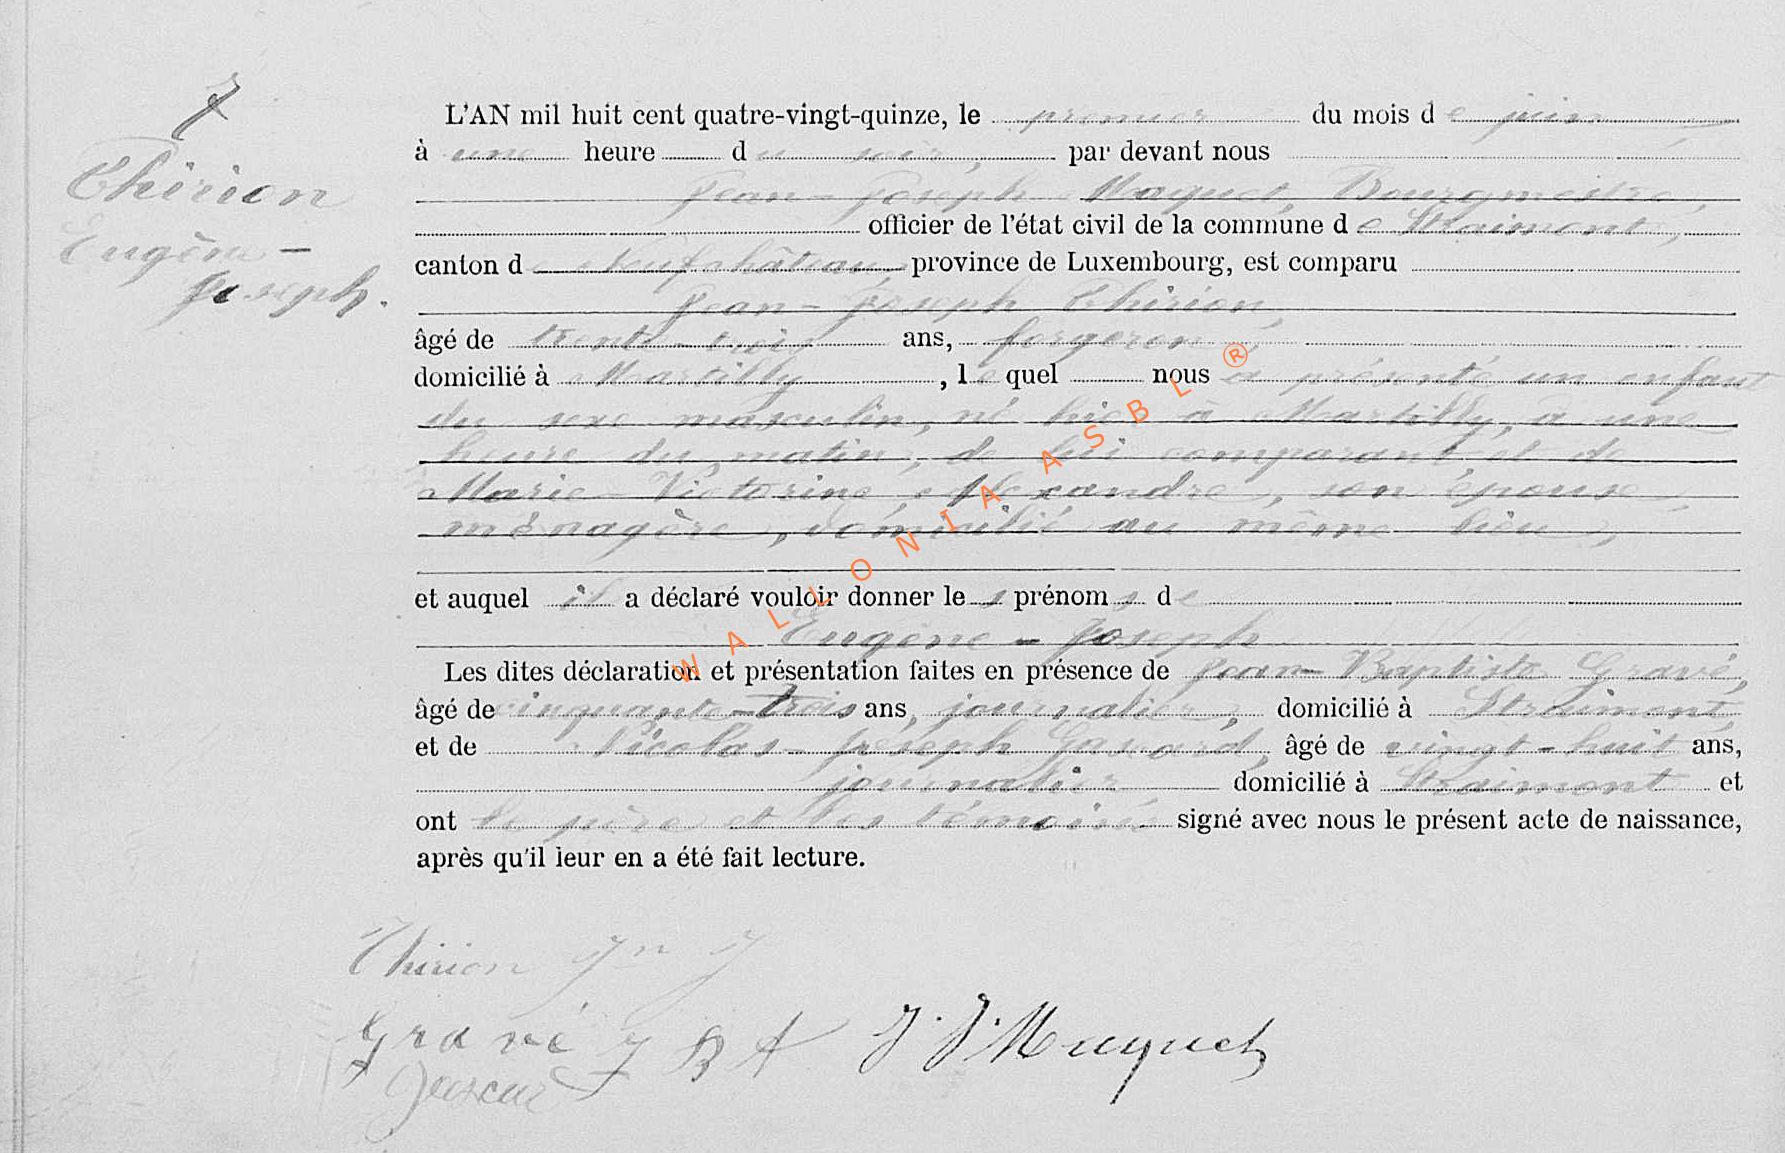 7
Thirion
Eugène-
Joseph.
L'AN mil huit cent quatre-vingt-quinze, le premier du mois de juin
à une heure du soir, par devant nous
Jean-Joseph Maquet, Bourgmestre,
officier de l'état civil de la commune de Straimont,
canton de Neufchâteau, province de Luxembourg, est comparu
Jean-Joseph Thirion,
âgé de trente-trois ans, forgeron,
domicilié à Martilly, lequel nous a présenté un enfant
du sexe masculin, né hier à Martilly, à une
heure du matin, de lui comparant et de
Marie-Victorine Alexandre, son épouse
ménagère, domicilié au même lieu,
et auquel il a déclaré vouloir donner les prénoms de
Eugène-Joseph
Les dites déclaration et présentation faites en présence de Jean-Baptiste Gravé,
âgé de cinquante-trois ans, journalier, domicilié à Straimont,
et de Nicolas-Joseph âgé de vingt-huit ans,
journalier domicilié à Straimont et
ont le père et les témoins signé avec nous le présent acte de naissance,
après qu'il leur en a été fait lecture.
Thirion Jn J
Gravé J B J. J. Maquet
WALLONIA ASBL ®